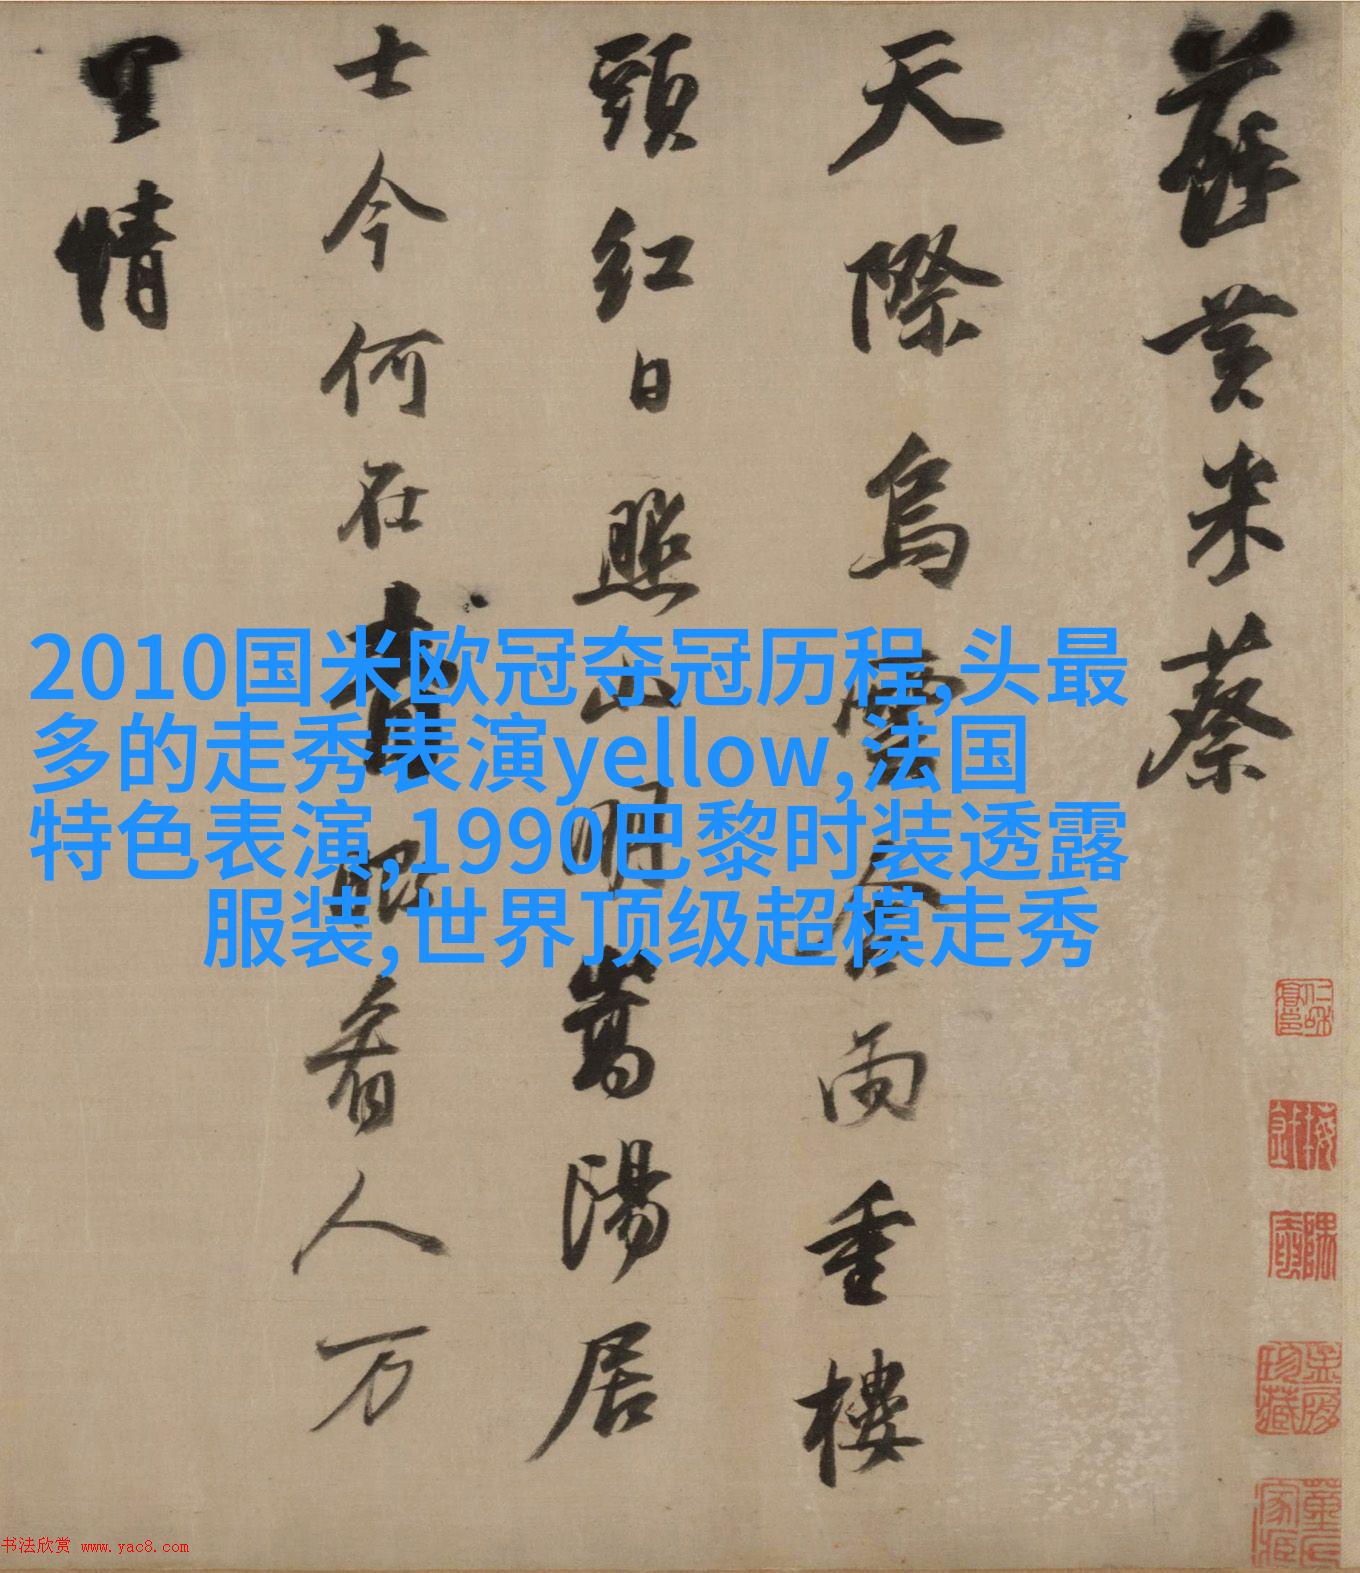 蘇黄米蔡
天際烏雲含雨重樓
頭紅日照山明嵩陽居
士今何在青眼看人万
里情
2010国米欧冠夺冠历程,头最
多的走秀表演yellow,法国
特色表演,1990巴黎时装透露
服装,世界顶级超模走秀
书法欣赏 www.yac8.com